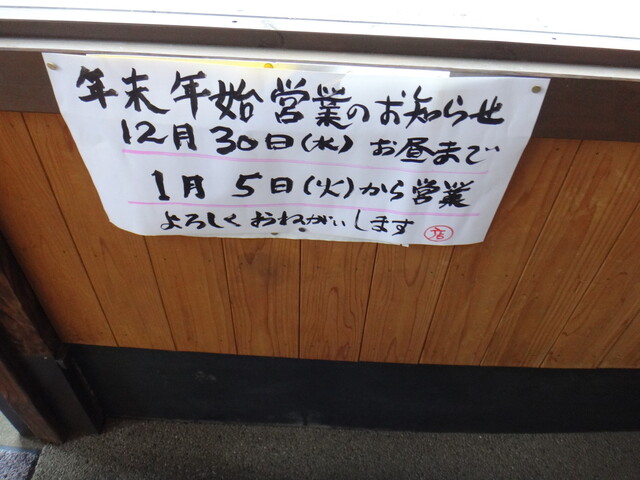 年末年始営業のお知らせ
12月30日(水)お昼まで
1月5日(火)から営業
よろしくおねがいします 店